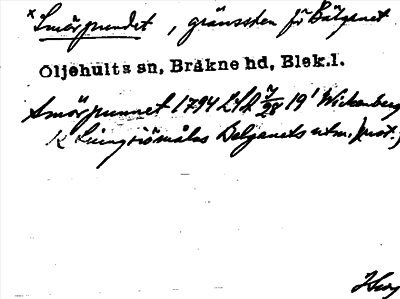 x Smörpundet, gränssten för Bälganet
Oljehults sn, Bräkne hd, Blek.l.
Smörpunnet 1794 LSA 7/28 19' Wickenberg
K Ljungsjömåla Belganets utm.